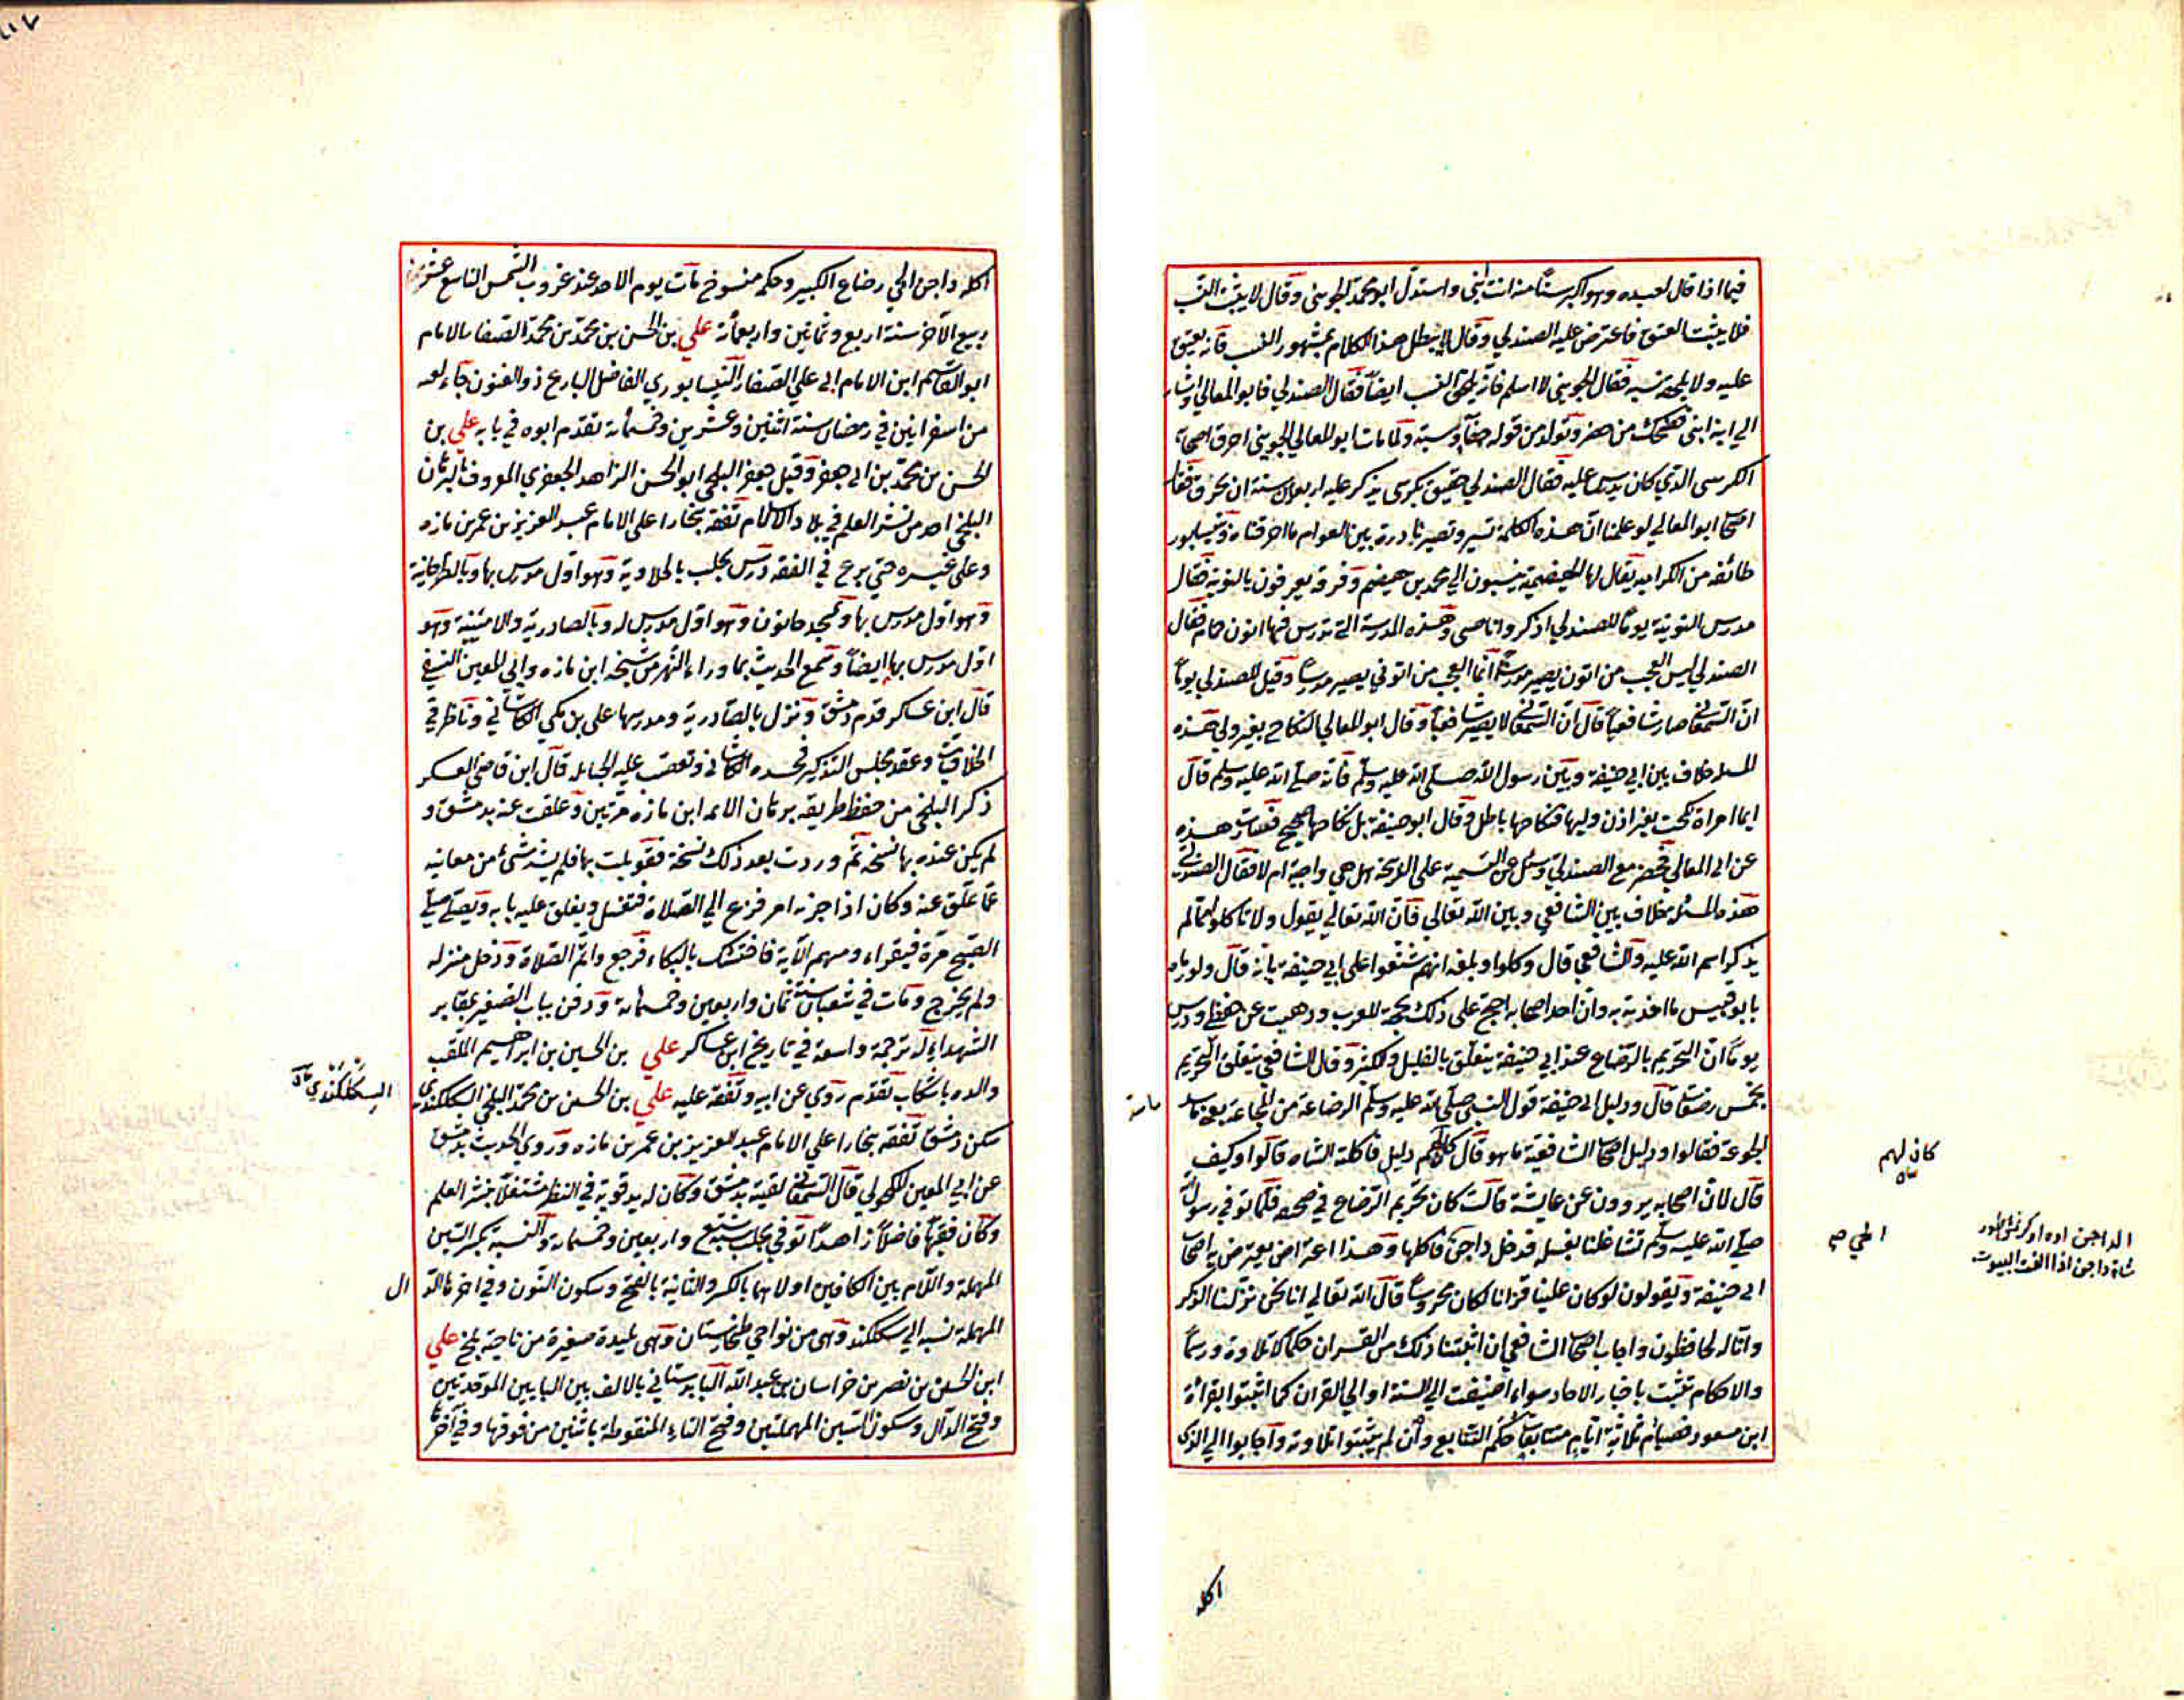 فيما اذا قال لعبده وهو اكبر سنا منه انت ابني واستدل ابو محمد الجويني وقال لا يثبت النسب
فلا يثبت العتق فاعترض عليه الصندلي وقال لا يبطل هذا الكلام بمشهور النسب فانه يعتق
عليه ولا يلحقه نسبه فقال الجويني لا اسلم فانه يلحق النسب ايضا فقال الصندلي فابو المعالي واشار
الى ابنه ابني فضحك من حضر وتولد من قوله جفاء وسبة ولما مات ابو المعالي الجويني احرق اصحابه
الكرسي الذي كان يدرس عليه فقال الصندلي حقيق بكرسي يذكر عليه اربعين سنة ان يحرق فقال
اصحاب ابو المعالي لو علمنا ان هذه الكلمة تسير وتصير نادرة بين العوام ما احرقناه وبنيسابور
طائفة من الكرامية يقال لها الهيضمية ينسبون الى محمد بن هيضم وفرقة يعرفون بالتونية فقال
مدرس التونية يوما للصندلي اذكر وانا صبي وهذه المدرسة التي تدرس فيها اتون حمام فقال
الصندلي ليس العجب من اتون يصير مدرسا انما العجب من اتوني يصير مدرسا وقيل للصندلي يوما
ان السمعاني صار شافعيا قال ان السمعاني لا يصير شافعيا وقال ابو المعالي النكاح بغير ولي هذه
المسئلة خلاف بين ابي حنيفة وبين رسول الله صلى الله عليه وسلم فانه صلى الله عليه وسلم قال
ايما امراة نكحت بغير اذن وليها فنكاحها باطل وقال ابو حنيفة بل نكاحها صحيح فنقلت هذه
عن ابي المعالي فحضر مع الصندلي وسئل عن التسمية على الذبيحة هل هي واجبة ام لا فقال الصندلي
هذه المسئلة خلاف بين الشافعي وبين الله تعالى فان الله تعالى يقول ولا تاكلوا مما لم
يذكر اسم الله عليه والشافعي قال وكلوا وبلغه انهم شنعوا على ابي حنيفة بانه قال ولو رماه
بابو قبيس ما اخذته به وان احد اصحابه احتج على ذلك بحجة للعرب وذهبت عن حفظي ودرس
يوما ان التحريم بالرضاع عند ابي حنيفة يتعلق بالقليل والكثير وقال الشافعي يتعلق التحريم
بخمس رضعات قال ودليل ابي حنيفة قول النبي صلى الله عليه وسلم الرضاعة من المجاعة يعني ما سد
الجوعة فقالوا ودليل اصحاب الشافعية ما هو قال كان لهم دليل فاكلته الشاه قالوا وكيف
قال لان اصحابه يروون عن عايشة قالت كان تحريم الرضاع في صحيفة فلما توفي رسول الله
صلى الله عليه وسلم تشاغلنا بغسله فدخل داجن فاكلها وهذا اعتراض يعترض به اصحاب
ابي حنيفة ويقولون لو كان علينا قرانا لكان محروسا قال الله تعالى انا نحن نزلنا الذكر
وانا له لحافظون واجاب اصحاب الشافعي ان اثبتنا ذلك من القران حكما لا تلاوة ورسما
والاحكام تثبت باخبار الاحاد سواء اضيفت الى السنة او الى القران كما اثبتوا بقراءة
ابن مسعود فصيام ثلاثة ايام متتابعات حكم التتابع وان لم يثبتوا تلاوته واجابوا الى الذي
كان لهم
الحي صح
شاة داجن اذا الفت البيوت
اكله
اكله داجن الحي رضاع الكبير وحكمه منسوخ مات يوم الاحد عند غروب الشمس التاسع عشر من
ربيع الآخر سنة اربع وثمانين واربعمائة علي بن الحسن بن محمد بن محمد الصفار الامام
ابو القاسم ابن الامام ابي علي الصفار النيسابوري الفاضل البارع ذو الفنون جاء نعيه
من اسفراين في رمضان سنة اثنين وعشرين وخمسمائة تقدم ابوه في بابه علي بن
الحسن بن محمد بن ابي جعفر وقيل جعفر البلخي ابو الحسن الزاهد الجعفري المعروف بالبرهان
البلخي احد من نشر العلم في بلاد الاسلام تفقه ببخارا على الامام عبد العزيز بن عمر بن مازه
وعلى غيره حتى برع في الفقه درس بحلب بالحلاوية وهو اول مدرس بها وبالطرخانية
وهو اول مدرس بها وبمسجد خاتون وهو اول مدرس له وبالصادرية والامينية وهو
اول مدرس بها ايضا وسمع الحديث بما وراء النهر من شيخه ابن مازه وابي المعين النسفي
قال ابن عساكر قدم دمشق ونزل بالصادرية ومدرسها علي بن مكي الكاشاني وناظر في
الخلافيات وعقد مجلس التذكير فحسده الكاشاني وتعصب عليه الحنابلة قال ابن قاضي العسكر
ذكر البلخي من حفظه طريقه برهان الائمة ابن مازه مرتين وعلقت عنه بدمشق و
لم يكن عنده بها نسخة ثم وردت بعد ذلك نسخة فقوبلت بها فلم يشذ شئ من معانيه
عما علق عنه وكان اذا حزنه امر فزع الى الصلاة فتغسل ويغلق عليه بابه ويصلي صلى
الصبح مرة فيقراء ومهم الآية فاختنق بالبكاء فرجع واتم الصلاة ودخل منزله
ولم يخرج ومات في شعبان سنة ثمان واربعين وخمسمائة ودفن بباب الصغير بمقابر
الشهداء له ترجمة واسعة في تاريخ ابن عساكر علي بن الحسين بن ابراهيم الملقب
والده باشكاب تقدم روي عن ابيه وتفقه عليه علي بن الحسن بن محمد البلخي السكلكندي
سكن دمشق تفقه ببخارا على الامام عبد العزيز بن عمر بن مازه وروي الحديث بدمشق
عن ابي المعين المكحولي قال السمعاني لقيته بدمشق وكان له يد قوية في النظر مشتغلا بنشر العلم
وكان فقيها فاضلا زاهدا توفي بحلب سنة سبع واربعين وخمسمائة والنسبة بكسر السين
المهملة واللام بين الكافين اولاهما بالكسر والثانية بالفتح وسكون النون وفي اخرها الدال
المهملة نسبة الى سكلكند وهي من نواحي طخارستان وهي بليدة صغيرة من ناحية بلخ علي
ابن الحسن بن نصر بن خراسان بن عبد الله البابدستاني بالالف بين البايين الموحدتين
وفتح الدال وسكون السين المهملتين وفتح التاء المنقوطة باثنين من فوقها وفي آخرها
السكلكندي